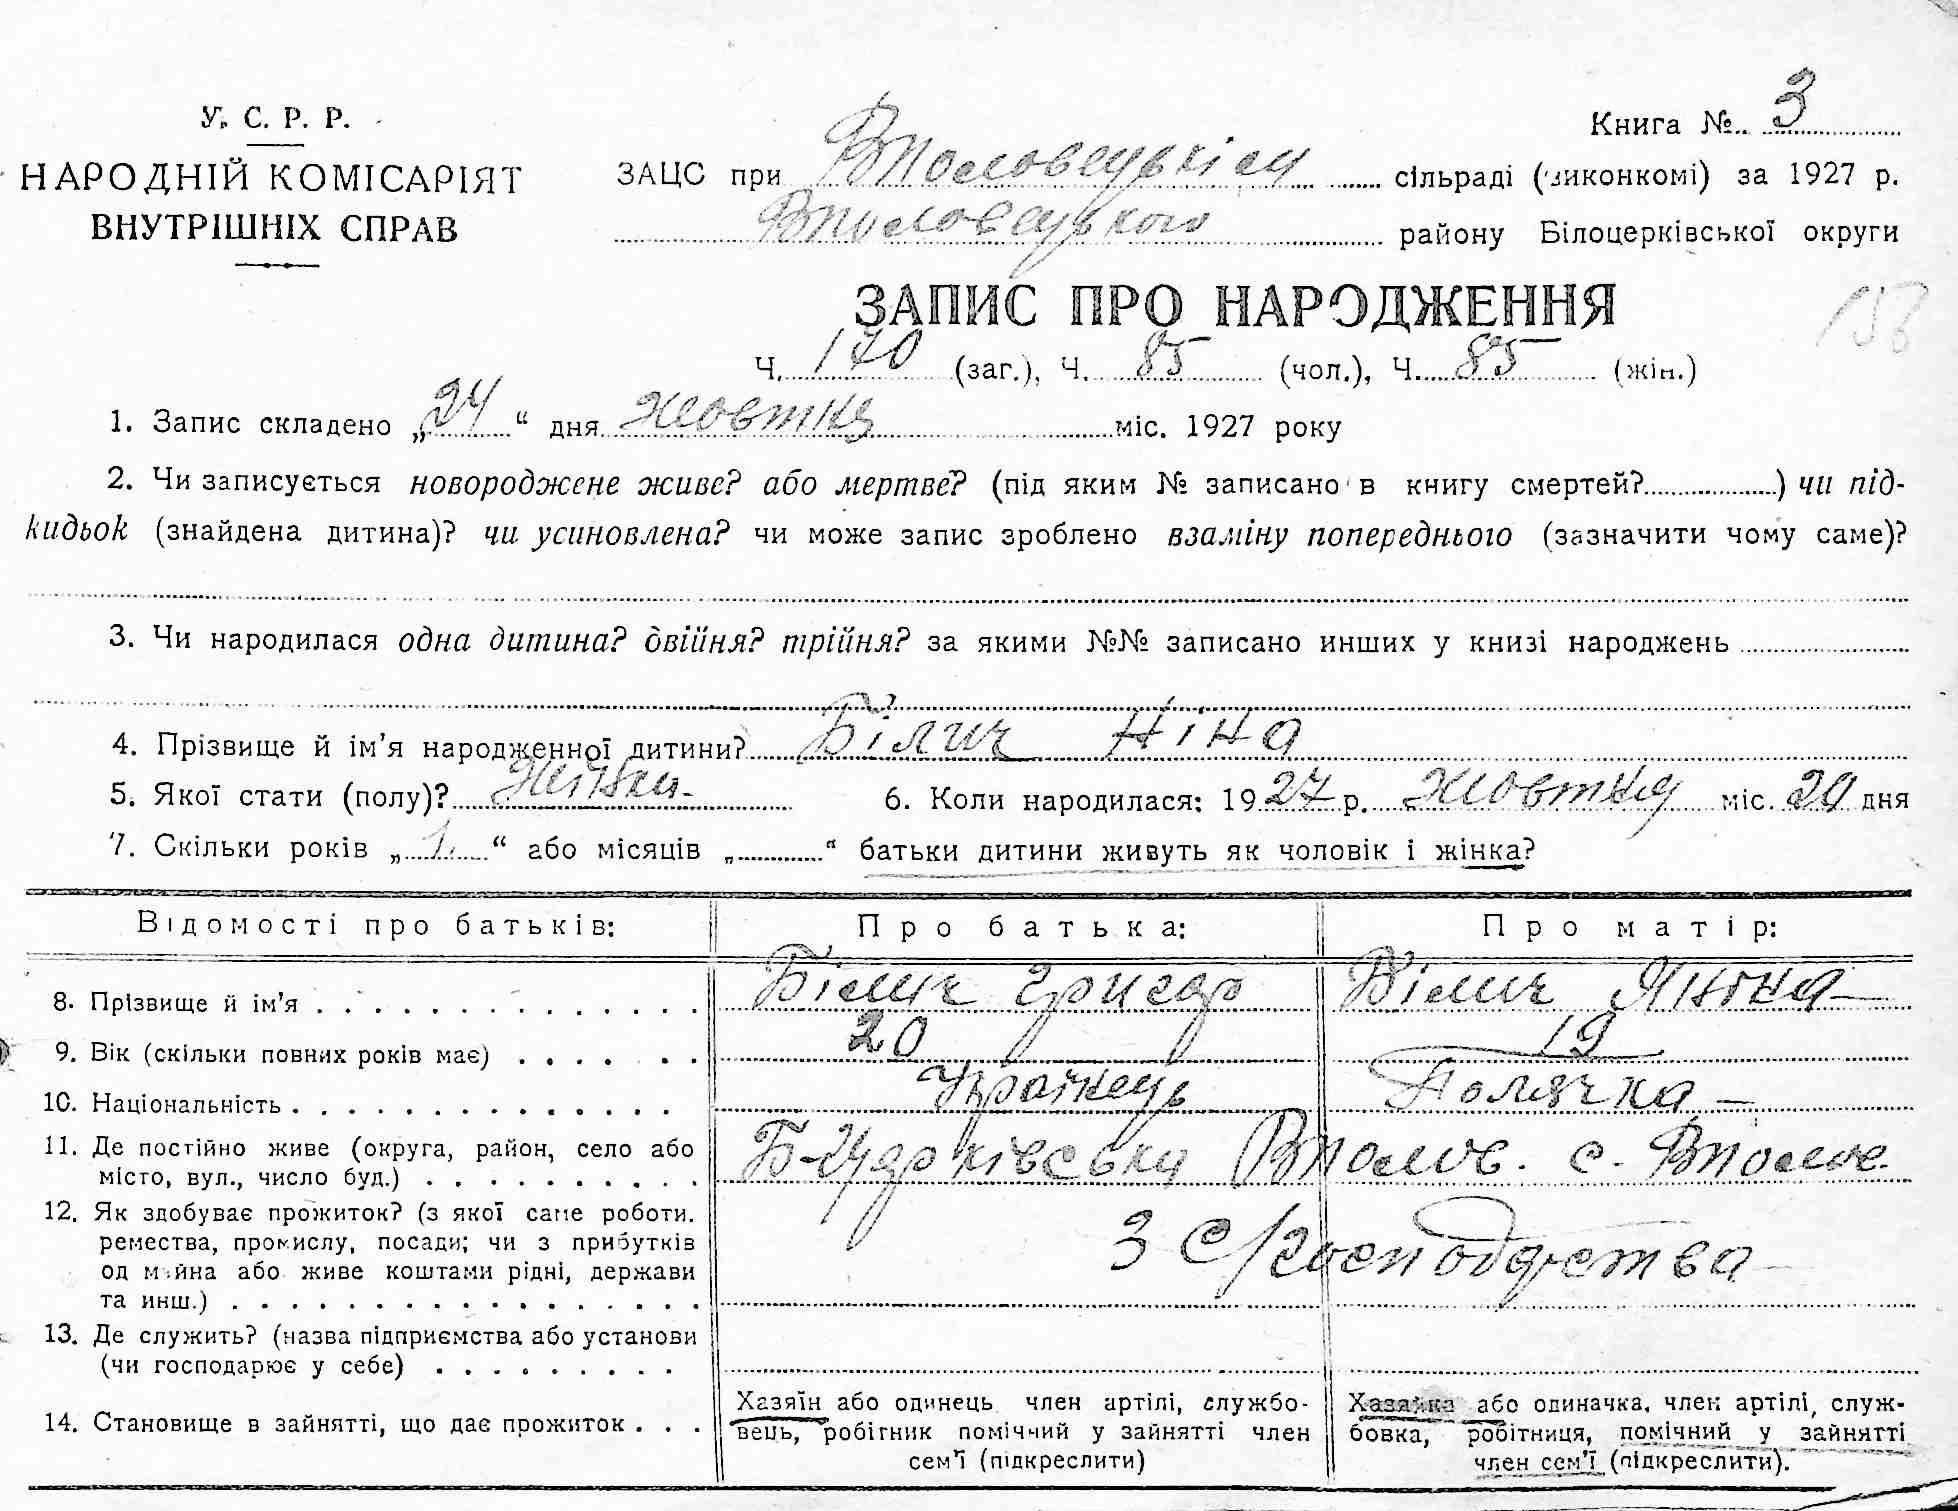 У. С. Р. Р.
НАРОДНІЙ КОМІСАРІЯТ
ВНУТРІШНІХ СПРАВ
Книга №. 3
ЗАЦС при Вполовецькім сільраді (виконкомі) за 1927 р.
Вполовецького району Білоцерківської округи
ЗАПИС ПРО НАРОДЖЕННЯ
Ч. 170 (заг.), Ч. 85 (чол.), Ч. 85 (жін.)
1. Запис складено „24“ дня жовтня міс. 1927 року
2. Чи записується новороджене живе? або мертве? (під яким № записано в книгу смертей?..........) чи під-
кидьок (знайдена дитина)? чи усиновлена? чи може запис зроблено взаміну попереднього (зазначити чому саме)?
3. Чи народилася одна дитина? двійня? трійня? за якими №№ записано инших у книзі народжень
4. Прізвище й ім’я народженної дитини? Білич Ніна
5. Якої стати (полу)? Жінка- 6. Коли народилася: 1927 р. жовтня міс. 20 дня
7. Скільки років „1“ або місяців „..........“ батьки дитини живуть як чоловік і жінка?
Відомості про батьків: Про батька: Про матір:
8. Прізвище й ім’я Білич Григор Білич Янина
9. Вік (скільки повних років має) 20 19
10. Національність Українець Полячка
11. Де постійно живе (округа, район, село або
місто, вул., число буд.) Б-Церківська Вполов. с. Вполов.
12. Як здобуває прожиток? (з якої саме роботи.
ремества, промислу, посади; чи з прибутків
од майна або живе коштами рідні, держави
та инш.) З с/господарства
13. Де служить? (назва підприємства або установи
(чи господарює у себе)
14. Становище в зайнятті, що дає прожиток
Хазяїн або одинець член артілі, службо-
вець, робітник помічний у зайнятті член
сем’ї (підкреслити)
Хазяйка або одиначка, член артілі, служ-
бовка, робітниця, помічний у зайнятті
член сем’ї (підкреслити).